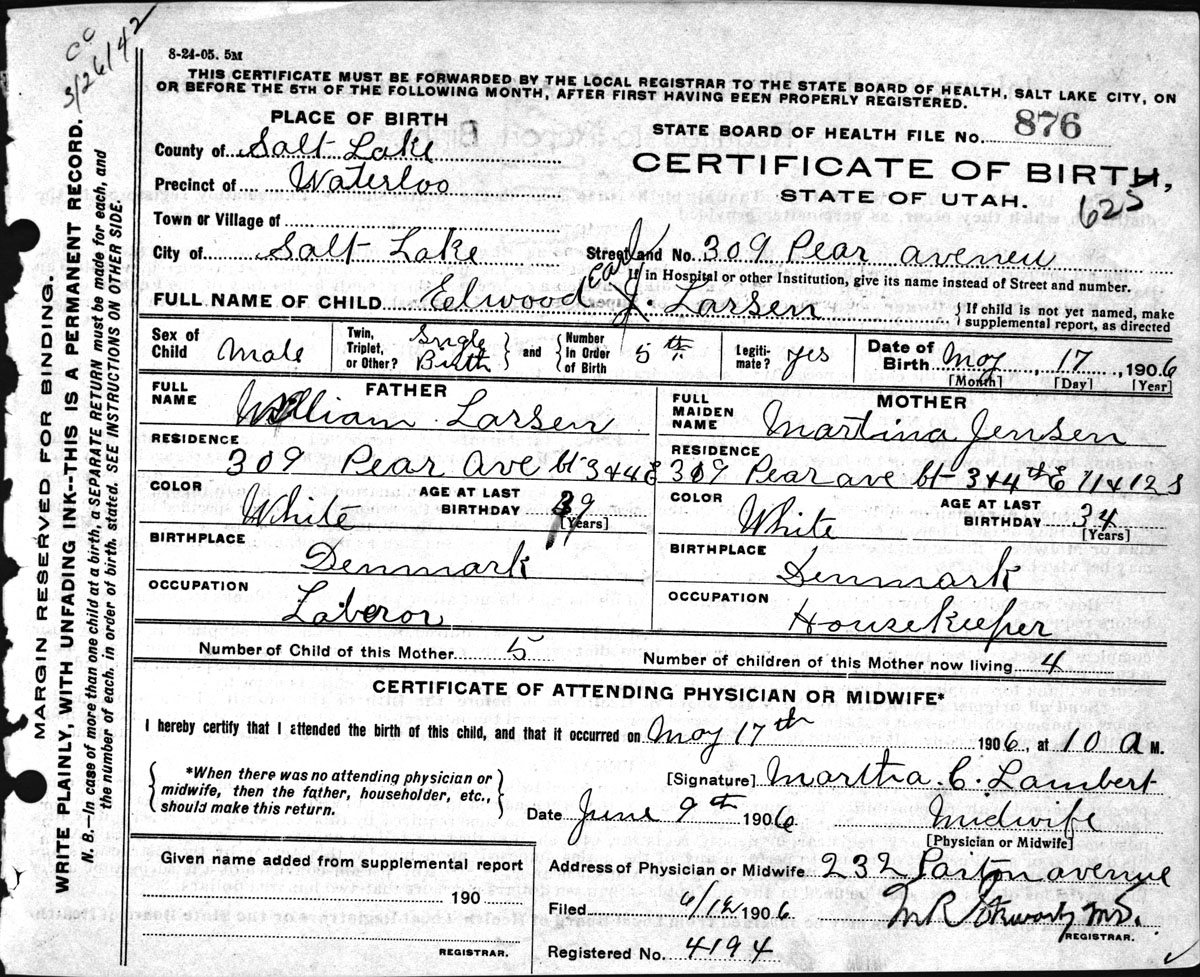 cc
3/26/42
8-24-05. 5M
THIS CERTIFICATE MUST BE FORWARDED BY THE LOCAL REGISTRAR TO THE STATE BOARD OF HEALTH, SALT LAKE CITY, ON
OR BEFORE THE 5TH OF THE FOLLOWING MONTH, AFTER FIRST HAVING BEEN PROPERLY REGISTERED.
PLACE OF BIRTH
STATE BOARD OF HEALTH FILE No. 876
County of Salt Lake
CERTIFICATE OF BIRTH,
Precinct of Waterloo
STATE OF UTAH. 625
Town or Village of
City of Salt Lake Street and No. 309 Pear aveneu
If in Hospital or other Institution, give its name instead of Street and number.
FULL NAME OF CHILD Elwood Carl J. Larsen { If child is not yet named, make supplemental report, as directed
Sex of Child Male Twin, Triplet, or Other? Sngle Birth } and { Number in Order of Birth 5th Legitimate? yes Date of Birth May 17, 1906
[Month] [Day] [Year]
FATHER
FULL NAME William Larsen
MOTHER
FULL MAIDEN NAME Martina Jensen
RESIDENCE 309 Pear Ave bt 3 & 4 E
RESIDENCE 309 Pear ave bt 3 & 4th E 11 & 12 S
COLOR White AGE AT LAST BIRTHDAY 39 [Years]
COLOR White AGE AT LAST BIRTHDAY 34 [Years]
BIRTHPLACE Denmark
BIRTHPLACE Denmark
OCCUPATION Laberor
OCCUPATION Housekeeper
Number of Child of this Mother 5 Number of children of this Mother now living 4
CERTIFICATE OF ATTENDING PHYSICIAN OR MIDWIFE*
I hereby certify that I attended the birth of this child, and that it occurred on May 17th 1906, at 10 a M.
{ *When there was no attending physician or midwife, then the father, householder, etc., should make this return. }
[Signature] Martha C. Lambert
Date June 9th 1906 Midwife
[Physician or Midwife]
Given name added from supplemental report
190
REGISTRAR.
Address of Physician or Midwife 232 avenue
Filed 6/12 1906 M.D.
REGISTRAR.
Registered No. 4194
MARGIN RESERVED FOR BINDING.
WRITE PLAINLY, WITH UNFADING INK--THIS IS A PERMANENT RECORD.
N. B.—In case of more than one child at a birth, a SEPARATE RETURN must be made for each, and
the number of each, in order of birth, stated. SEE INSTRUCTIONS ON OTHER SIDE.